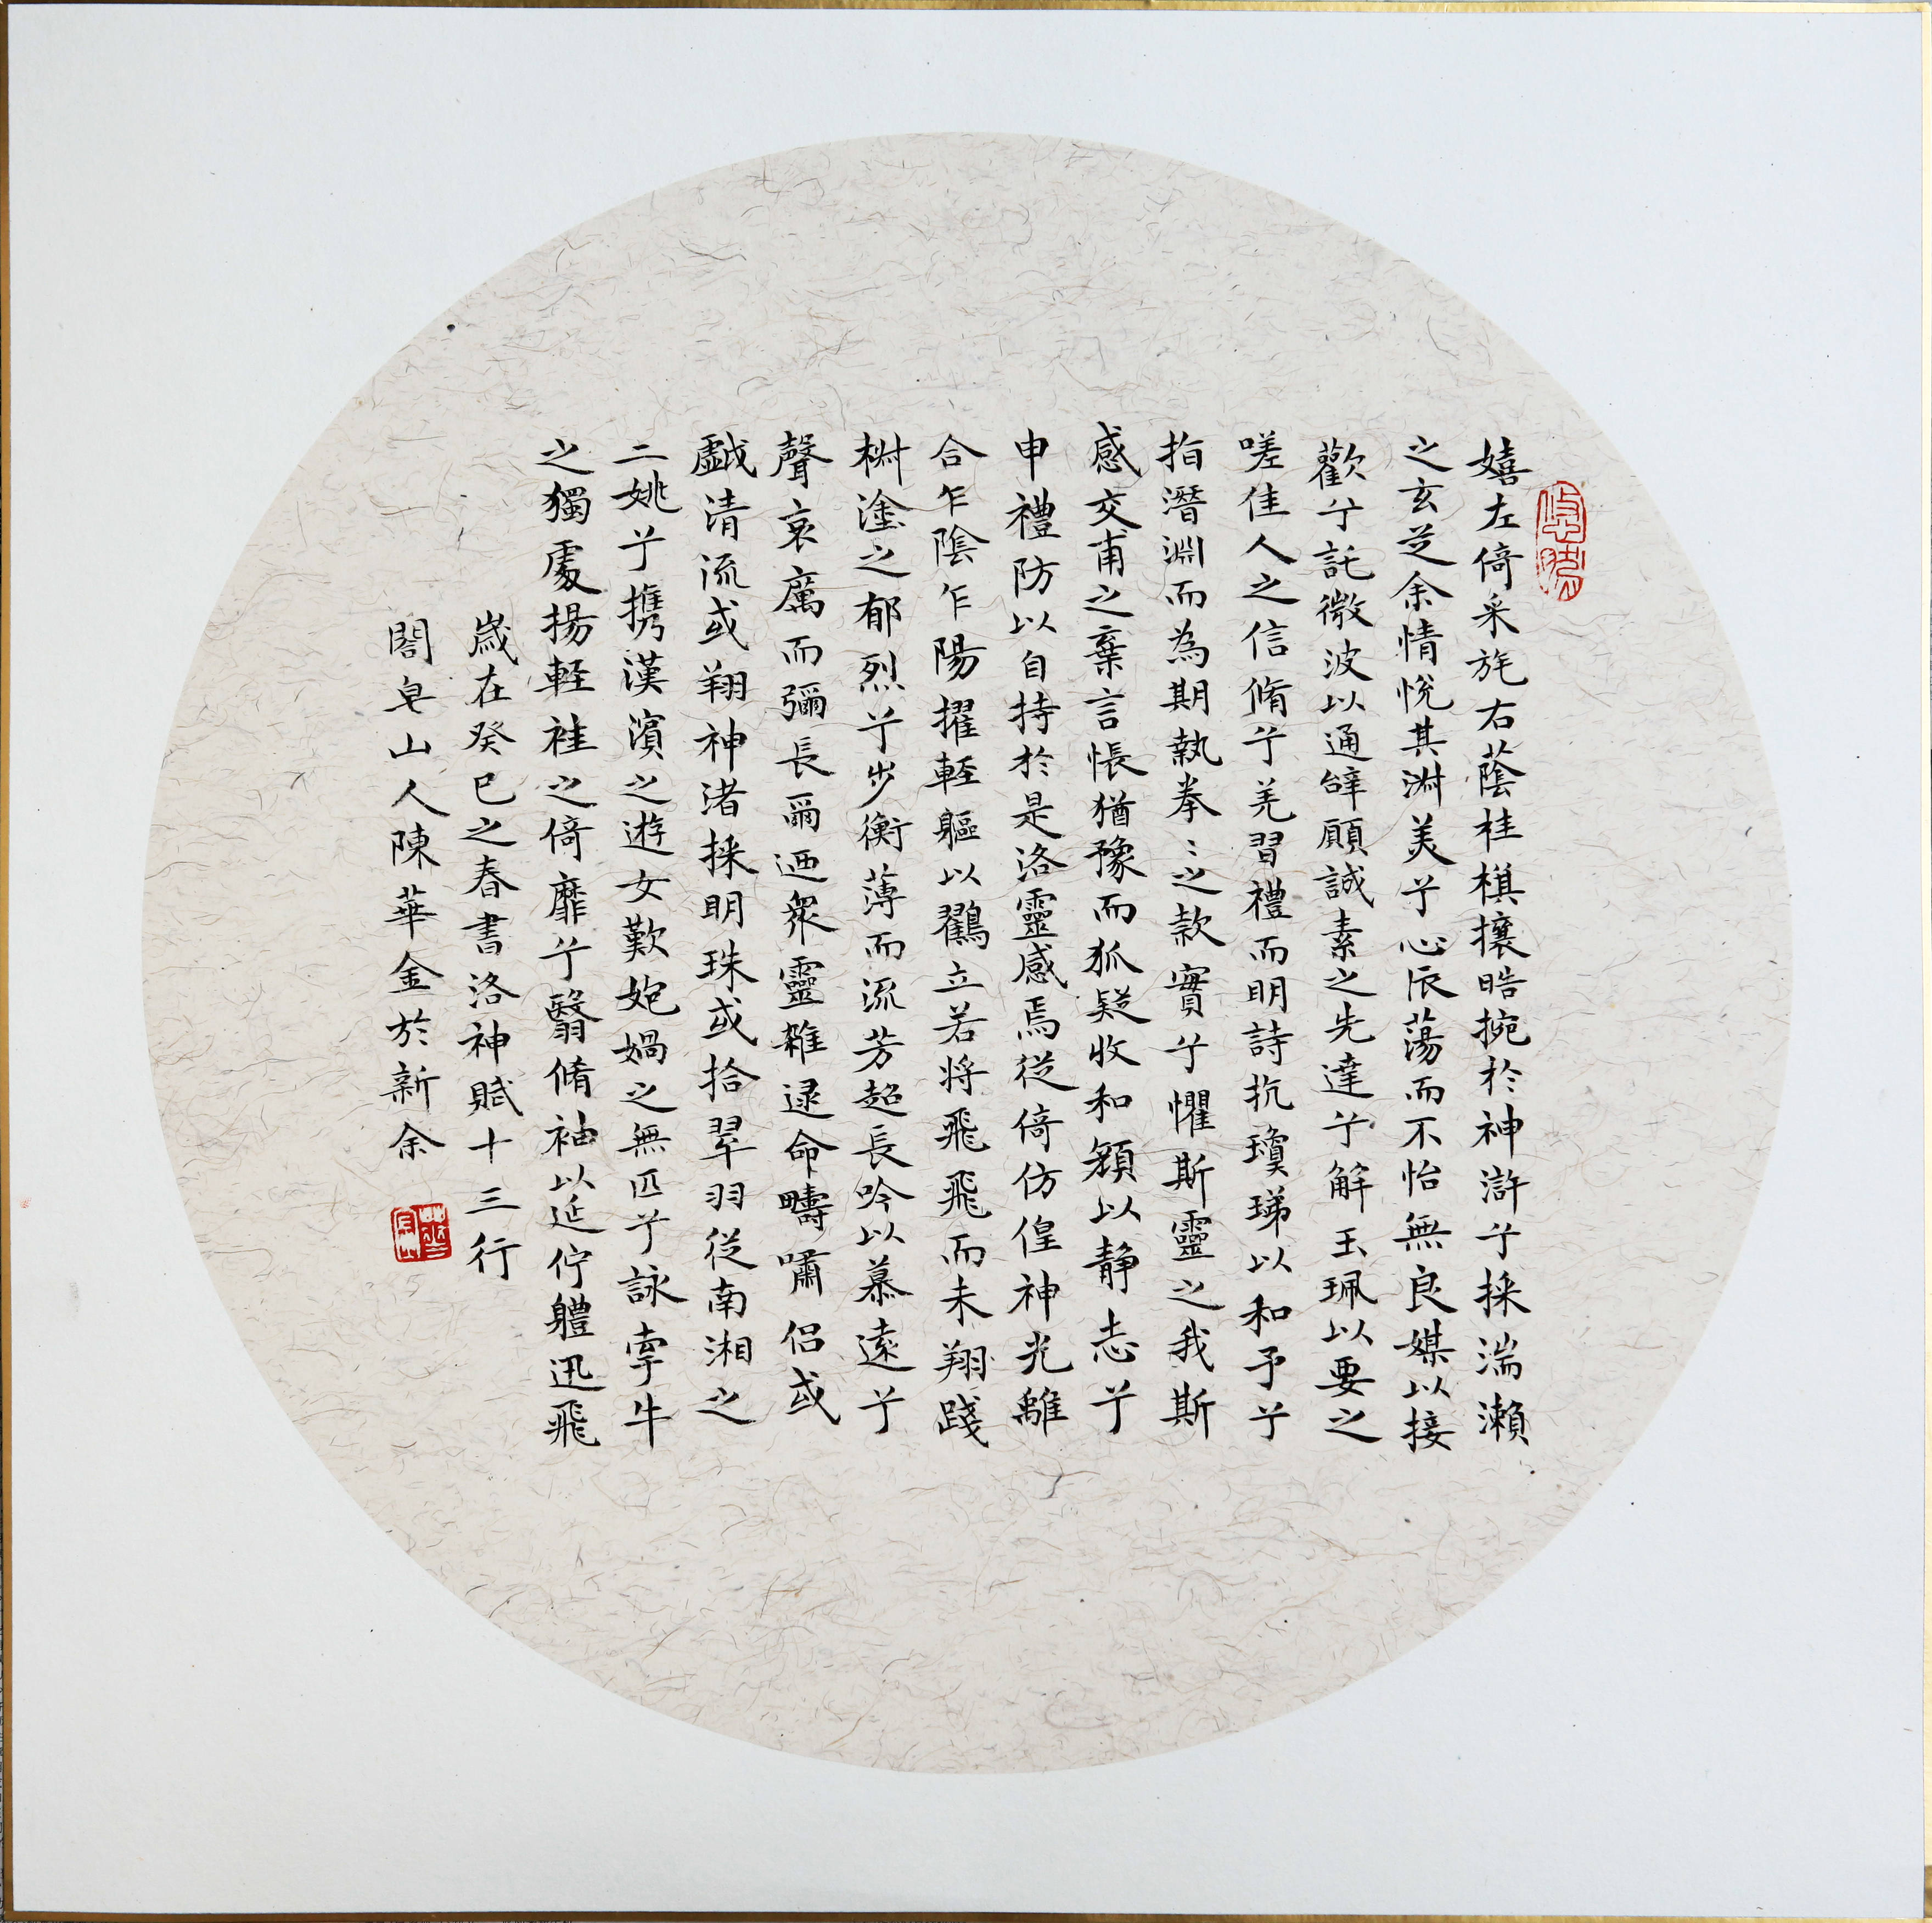 嬉左倚采旄右蔭桂棋攘晧捥於神滸兮採湍瀨
之玄芝余情悅其淋美兮心辰蕩而不怡無良媒以接
歡兮託微波以通辭願誠素之先達兮解玉珮以要之
嗟佳人之信脩兮羌習禮而明詩抗瓊珶以和予兮
指潛淵而為期執拳〻之款實兮懼斯靈之我斯
感交甫之棄言悵猶豫而狐疑收和顏以静志兮
申禮防以自持於是洛靈感焉従倚仿偟神光離
合乍陰乍陽擢輕軀以鸛立若将飛飛而未翔踐
樹塗之郁烈兮步衡薄而流芳超長吟以慕遠兮
聲哀厲而彌長爾迺衆靈雜遝命疇嘯侶或
戲清流或翔神渚採明珠或拾翠羽従南湘之
二姚兮攜漢濱之遊女歎匏媧之無匹兮詠牽牛
之獨處揚輕袿之倚靡兮翳脩袖以延佇軆迅飛
歲在癸巳之春書洛神賦十三行
閤皁山人陳華金於新余